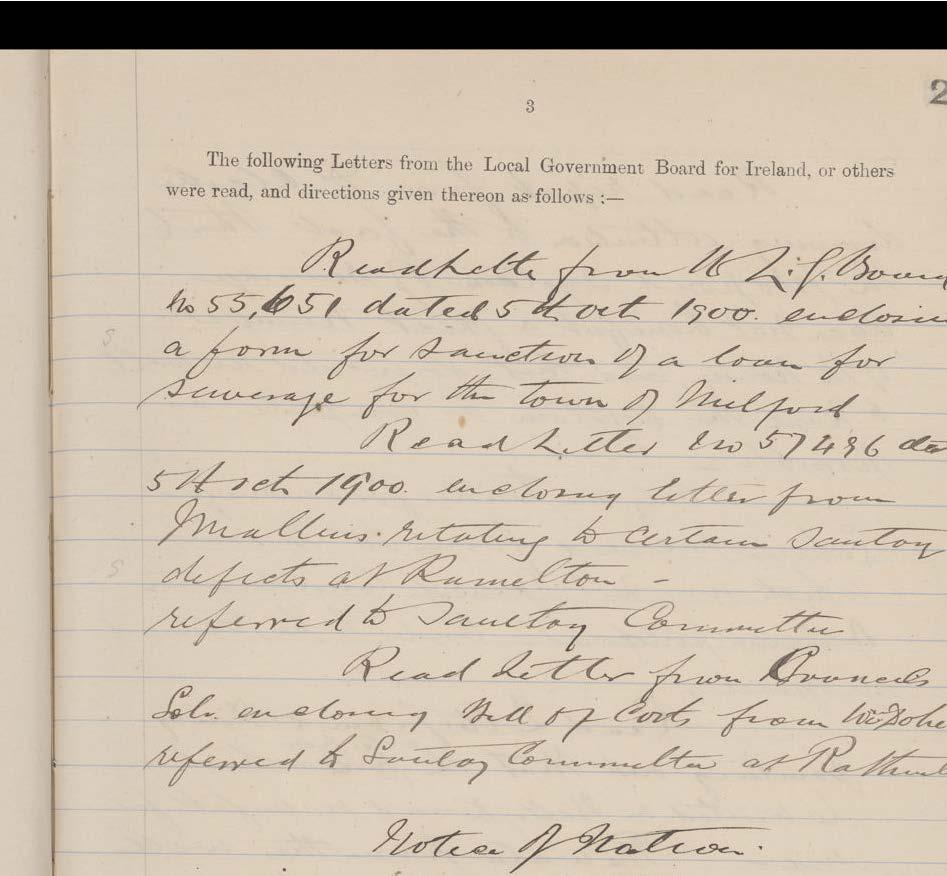 3
2
The following Letters from the Local Government Board for Ireland, or others
were read, and directions given thereon as follows :—
Read Letter from the L. G. Board
No 55,651 dated 5th Oct 1900. enclosin
a form for sanction of a loan for
sewerage for the town of Milford
Read Letter No 57496 da
5th Oct 1900. enclosing letter from
Mullins relating to certain Sanitary
defects at Ramelton –
referred to Sanitary Committee
Read Letter from Councils
Solr. enclosing Bill of Costs from Dohe
referred to Sanitary Committee at Rathmul
Notice of Motion.